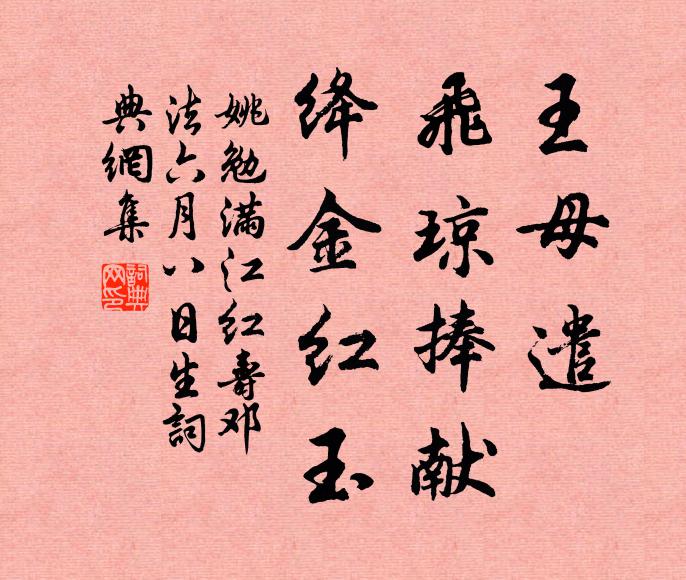 王母遣
飛琼捧献
绛金红玉
姚勉满江红壽邓
法六月八日生詞
典網集
詞典
网印